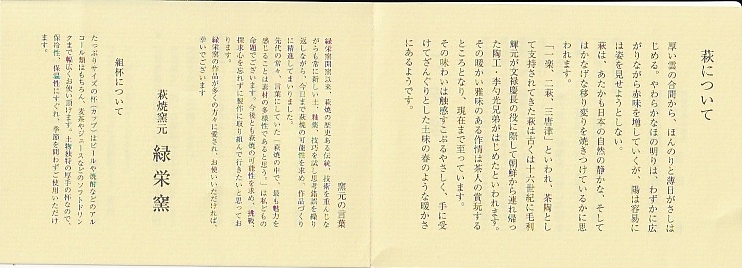 萩について
厚い雲の合間から、ほんのりと薄日がさしは
じめる。やわらかなほの明りは、わずかに広
がりながら赤味を増していくが、陽は容易に
は姿を見せようとしない。
萩は、あたかも日本の自然の静かな、そして
はかなげな移り変りを焼きつけているかに思
われます。
「一楽、二萩、三唐津」といわれ、茶陶とし
て支持されてきた萩は古くは十六世紀に毛利
輝元が文禄慶長の役に際して朝鮮から連れ帰っ
た陶工・李勺光兄弟がはじめたといわれます。
その暖かい雅味のある作情は茶人の賞玩する
ところとなり、現在まで至っています。
その味わいは触感すこぶるやさしく、手に受
けてざんぐりとした土味の春のような暖かさ
にあるようです。
窯元の言葉
緑栄窯開窯以来、萩焼の歴史ある伝統、技術を重んじな
がらも常に新しい土、釉薬、技巧を試し思考錯誤を繰り
返しながら、今日まで萩焼の可能性を求め、作品づくり
に精進してまいりました。
先代の常々、言葉にしていた「萩焼の中で、最も魅力を
感じることは素材の多様性であると思う。」は私どもの
命題でございます。今後とも萩焼の可能性を求め、挑戦、
探求心を忘れずに製作に取り組んで行きたいと思ってお
ります。
緑栄窯の作品が多くの方々に愛され、お使いいただければ、
幸いでございます
萩焼窯元 緑栄窯
組杯について
たっぷりサイズの杯(カップ)はビールや焼酎などのアル
コール類はもちろん、麦茶やジュースなどのソフトドリン
クまで幅広くお使い頂けます。土物独特の厚手の杯なので、
保冷性、保温性にすぐれ、季節を問わずご使用いただけ
ます。